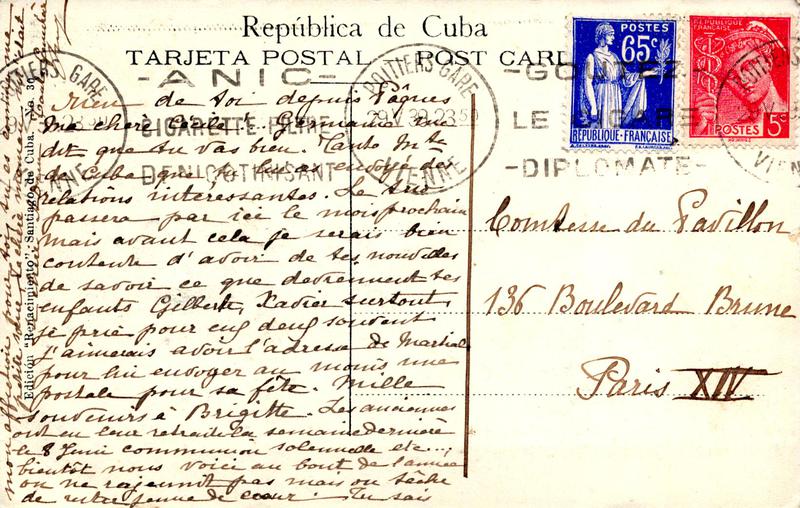 República de Cuba
TARJETA POSTAL
POST CARD
POSTES
65c
REPUBLIQUE-FRANÇAISE
RÉPUBLIQUE FRANÇAISE
POSTES 5c
POITIERS GARE
29 V 39
VIENNE
-GOUTEZ-
LE CIGARE
-DIPLOMATE-
-ANIC-
CIGARETTE FILTRE
DENICOTINISANT
Edición "Renacimiento". Santiago de Cuba. No. 36
Rien de toi depuis Pâques
ma chère Cécile! Germaine me
dit que tu vas bien.
de Cuba que je lui ai envoyé des
relations intéressantes. Le
passera par ici le mois prochain
mais avant cela je serais bien
contente d'avoir de tes nouvelles
de savoir ce que deviennent tes
enfants Gilbert, Xavier surtout,
je prie pour eux deux souvent
J'aimerais avoir l'adresse de Martial
pour lui envoyer au moins une
postale pour sa fête. Mille
souvenirs à Brigitte. Les anciennes
ont eu leur retraite la semaine dernière
le 8 Juin communion solennelle etc...,
bientôt nous voici au bout de l'année
on ne rajeunit pas mais on tâche
de rester jeune de coeur. Tu sais
mon affection pour toi
Comtesse du Pavillon
136 Boulevard Brune
Paris XIV